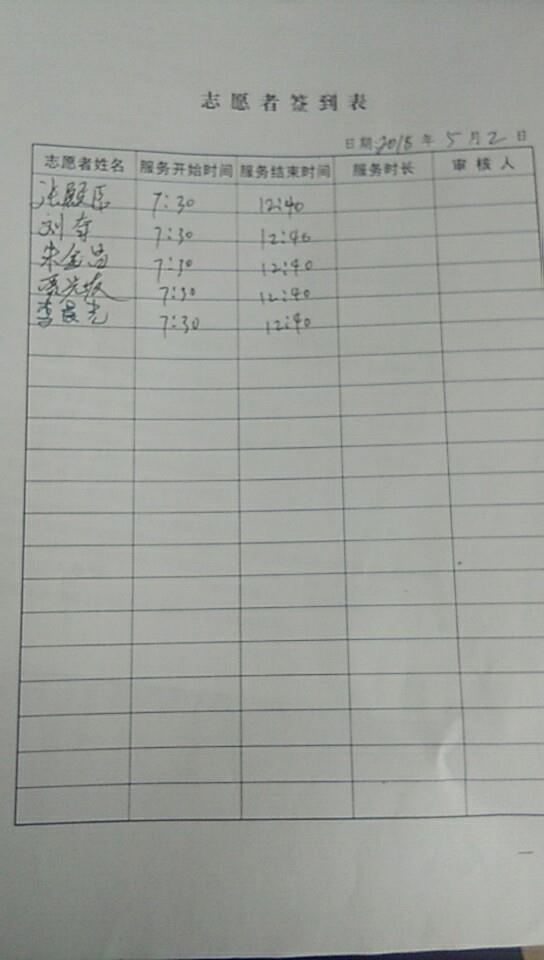 志愿者签到表
日期 2018 年 5 月 2 日
志愿者姓名 服务开始时间 服务结束时间 服务时长 审核人
张殿臣 7:30 12:40
刘奎 7:30 12:40
朱金昌 7:30 12:40
7:30 12:40
李晨光 7:30 12:40